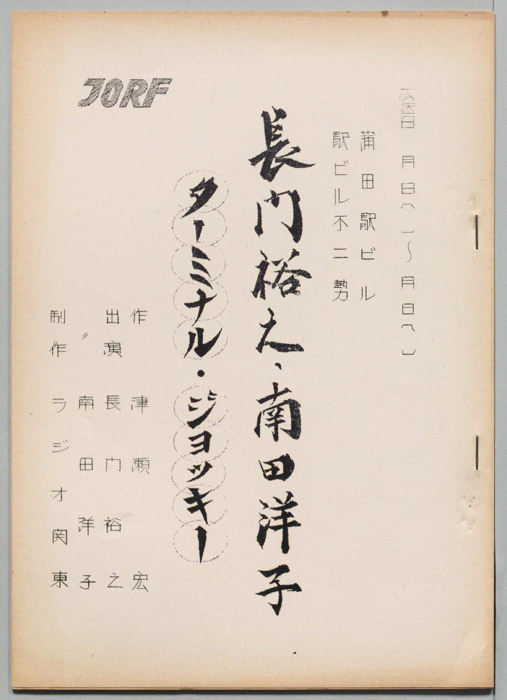 月 日( )〜 月 日( )
蒲田駅ビル
駅ビル不二勢
長門裕之・南田洋子
ターミナル・ジョッキー
JORF
作 津瀬 宏
出演 長門裕之
〃 南田洋子
制作 ラジオ関東